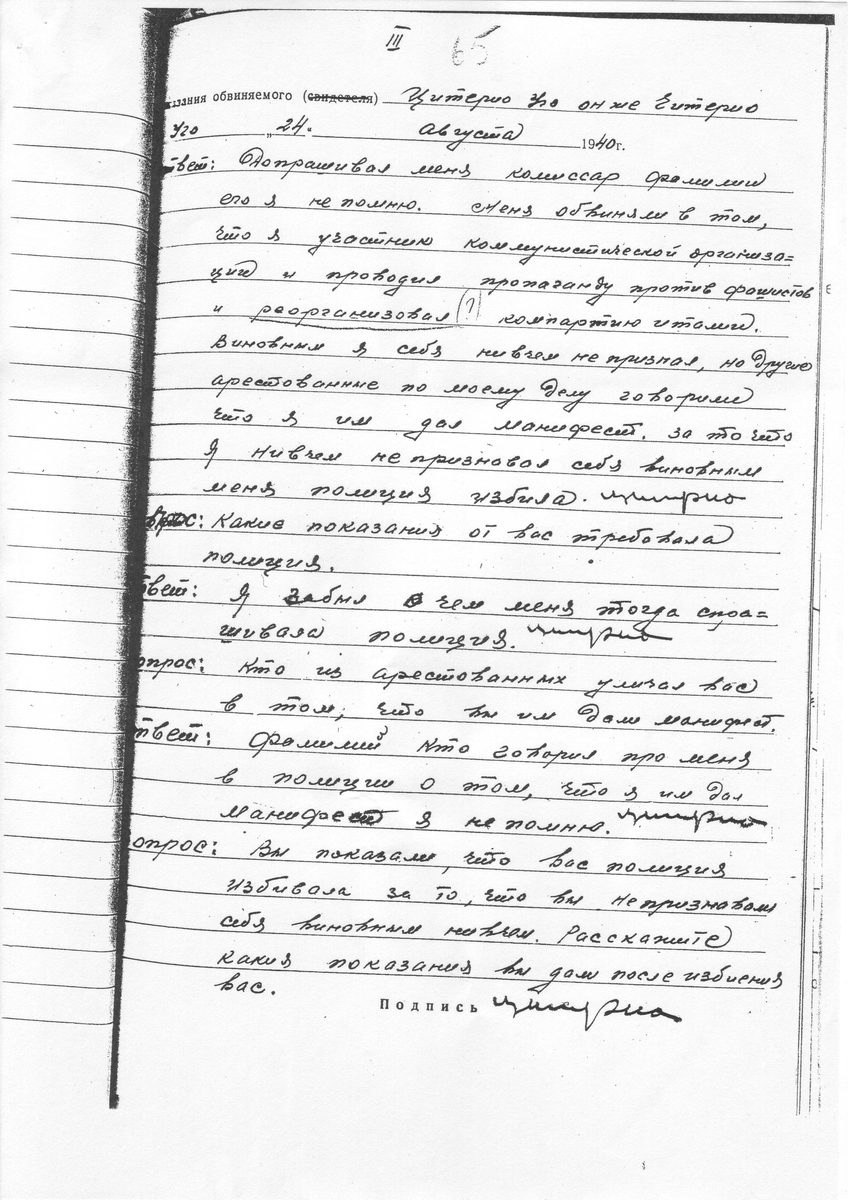 III 65
азания обвиняемого (свидетеля) Цитерио Уго он же Читерио
Уго „24. Августа 1940г.
твет: Допрашивал меня комиссар фамилии
его я не помню. Меня обвиняли в том,
что я участник коммунистической организа=
ции и проводил пропаганду против фашистов
и реорганизовал (?) компартию италии.
Виновным я себя нивчем не признал, но другие
арестованные по моему делу говорили
что я им дал манифест. за то что
я нивчем не признавал себя виновным
меня полиция избила. Цитерио
вопрос: Какие показания от вас требовала
полиция.
твет: Я забыл о чем меня тогда спра=
шивала полиция. Цитерио
опрос: Кто из арестованных уличал вас
в том, что вы им дали манифест.
твет: Фамилий кто говорил про меня
в полиции о том, что я им дал
манифест я не помню. Цитерио
опрос: Вы показали, что вас полиция
избивала за то, что вы не признавали
себя виновным нивчем. Расскажите
какия показания вы дали после избиения
вас.
Подпись Цитерио